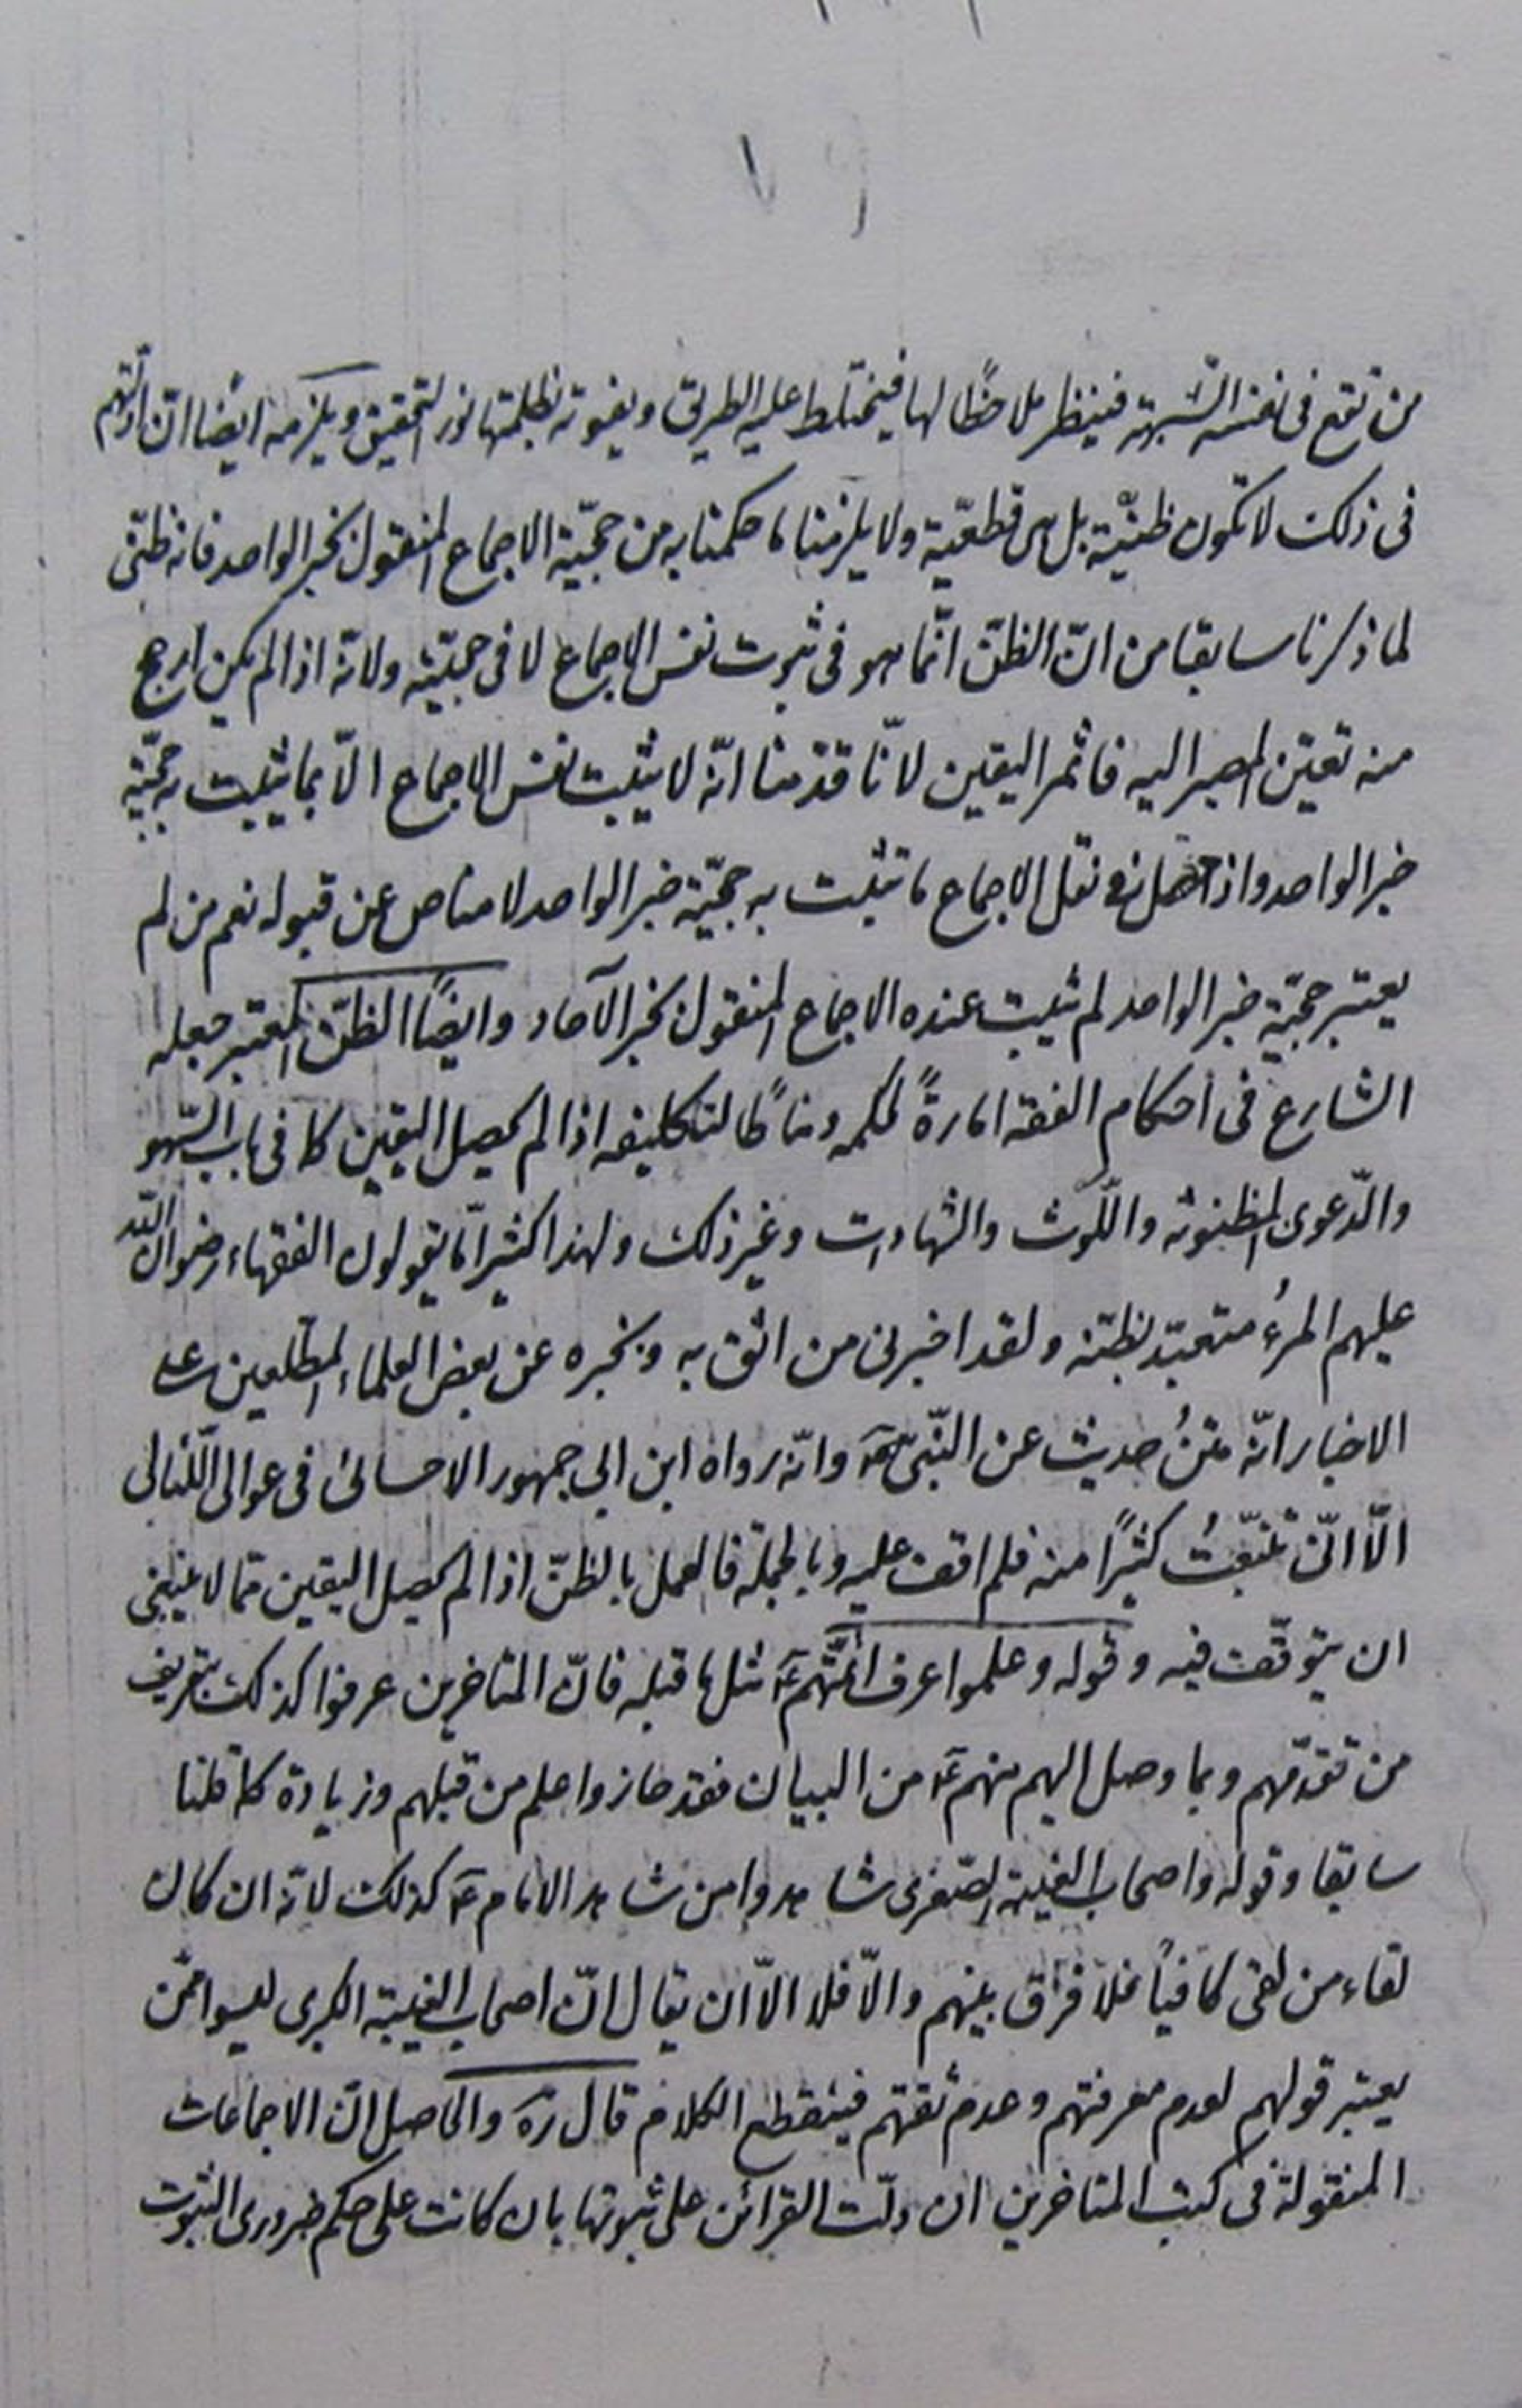 من تقع فى نفسه الشبهة فينظر ملاحظًا لها فيختلط عليه الطريق ويفوته بظلمتها نور التحقيق ويلزمه ايضا انّ ادلّتهم
فى ذلك لا تكون ظنيّة بل هى قطعيّة ولا يلزمنا ما حكمنا به من حجيّة الاجماع المنقول بخبر الواحد فانه ظنّى
لما ذكرنا سابقا من انّ الظنّ انّما هو فى ثبوت نفس الاجماع لا فى حجيّته ولانّه اذا لم يكن ارجح
منه تعيّن المصير اليه فاثمر اليقين لانّا قدّمنا انّه لا يثبت نفس الاجماع الّا بما يثبت به حجيّة
خبر الواحد واذا حصل فى نقل الاجماع ما تثبت به حجيّة خبر الواحد لا مناص عن قبوله نعم من لم
يعتبر حجيّة خبر الواحد لم يثبت عنده الاجماع المنقول بخبر الآحاد وايضًا الظنّ المعتبر جعله
الشارع فى احكام الفقه امارةً لحكمه ومناطًا لتكليفه اذا لم يحصل اليقين كما فى باب السّهو
والدّعوى المظنونة واللّوث والشهادات وغير ذلك ولهذا كثيرًا مّا يقولون الفقهاء رضوان اللّه
عليهم المرءُ متعبّد بظنّه ولقد اخبرنى من اثق به وبخبره عن بعض العلماء المطّلعين على
الاخبار انّه متنُ حديث عن النّبىّ ص وانّه رواه ابن ابى جمهور الاحسائى فى عوالى اللّئالى
الّا انّى تتبّعتُ كثيرًا منه فلم اقف عليه وبالجملة فالعمل بالظنّ اذا لم يحصل اليقين ممّا لا ينبغى
ان يتوقّف فيه وقوله وعلموا عرف ائمّتهم ع مثل ما قبله فانّ المتاخرين عرفوا كذلك بتعريف
من تقدّمهم وبما وصل اليهم منهم ع من البيان فقد حازوا علم من قبلهم وزيادة كما قلنا
سابقا وقوله واصحاب الغيبة الصّغرى شاهدوا من شاهد الامام ع كذلك لانّه ان كان
لقاء من لقى كافيًا فلا فرق بينهم والّا فلا الّا ان يقال انّ اصحاب الغيبة الكبرى ليسوا ممّن
يعتبر قولهم لعدم معرفتهم وعدم ثقتهم فينقطع الكلام قال ره والحاصل انّ الاجماعات
المنقولة فى كتب المتاخرين ان دلّت القرائن على ثبوتها بان كانت على حكم ضرورى الثبوت